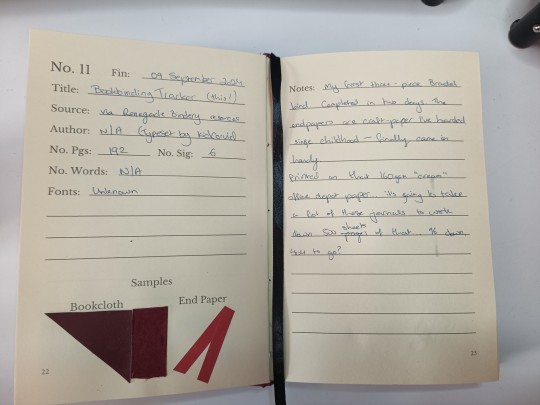 No. 11
Fin: 09 September 2024
Title: Bookbinding Tracker (this!)
Source: via Renegade Bindery
Author: N/A (Typeset by
No. Pgs: 192 No. Sig: 6
No. Words: N/A
Fonts: Unknown
Samples
Bookcloth
End Paper
22
Notes: My first three-piece Bradel
bind. Completed in two days. The
endpapers are craft-paper I've hoarded
since childhood — finally came in
handy
Printed on that 160gsm "cream"
office depot paper... it's going to take
a lot of these journals to work
down 500 sheets of that... down,
to go?
23